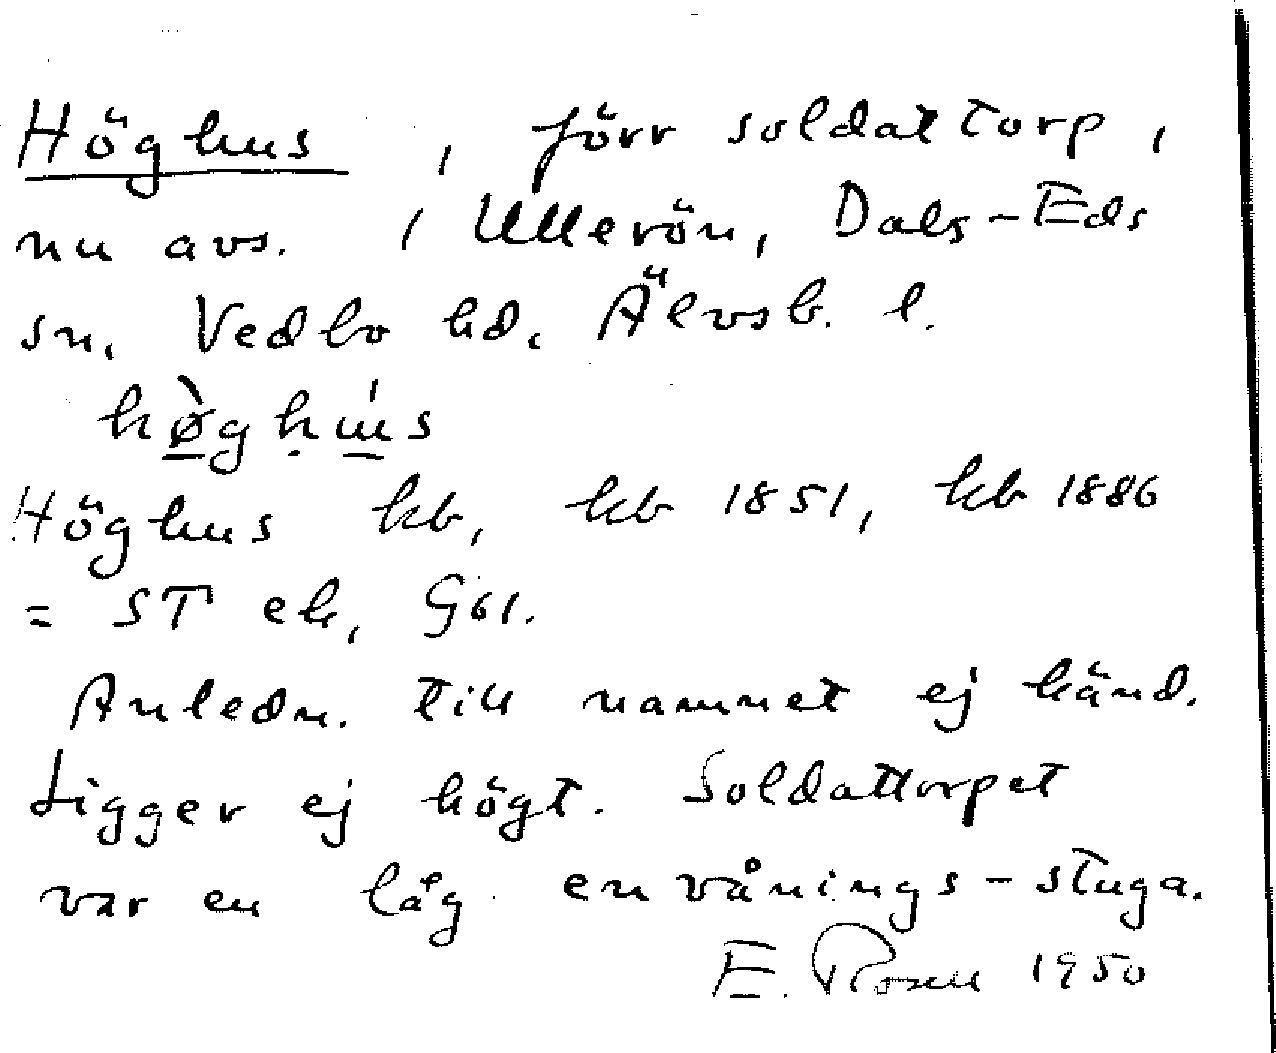 Höghus, förr soldattorp,
nu avs. i Ullerön, Dals-Eds
sn, Vedbo hd, Älvsb. l.
hø̀ghu̍s
Höghus hb, kb 1851, kb 1886
= ST ek, G61.
Anledn. till namnet ej känd.
Ligger ej högt. Soldattorpet
var en låg envånings-stuga.
E. Rosell 1950